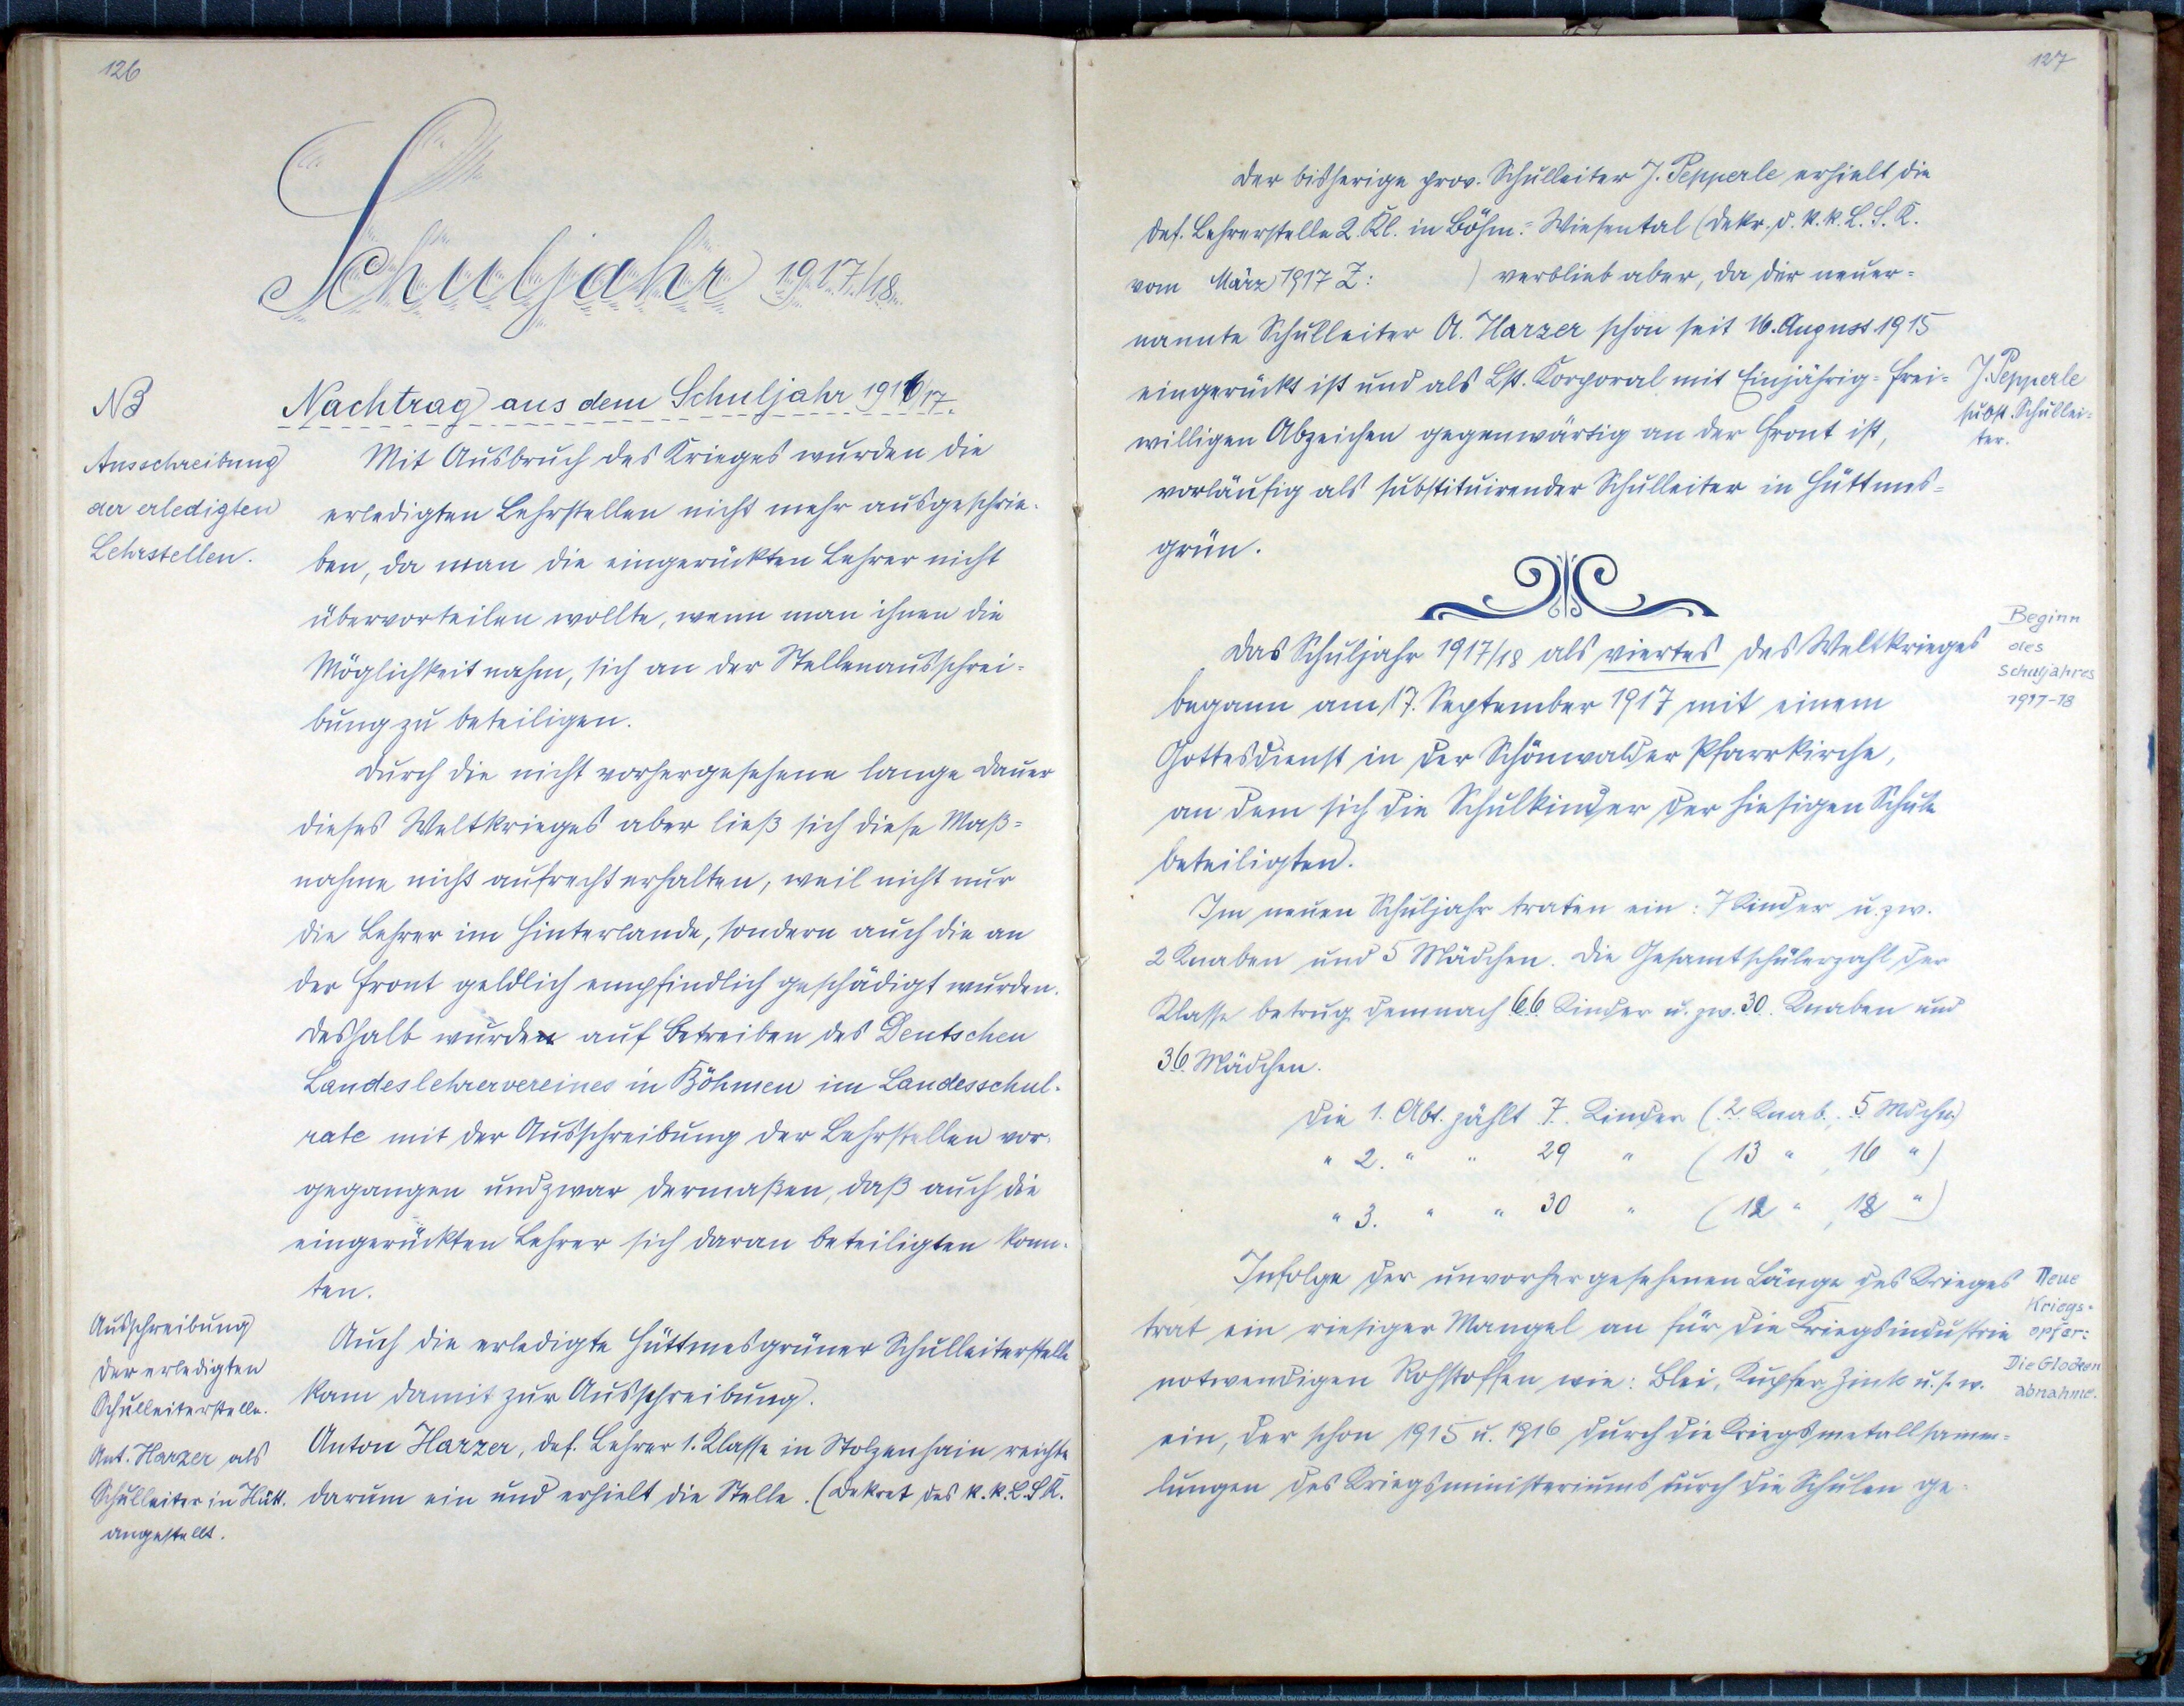 126
Schuljahr 1917/18
NB
Nachtrag aus dem Schuljahr 1916/17.
Ausschreibung
der erledigten
Lehrstellen.
Mit Ausbruch des Krieges wurden die
erledigten Lehrstellen nicht mehr ausgeschrie-
ben, da man die eingerückten Lehrer nicht
übervorteilen wollte, wenn man ihnen die
Möglichkeit nahm, sich an der Stellenausschrei-
bung zu beteiligen.
Durch die nicht vorhergesehene lange Dauer
dieses Weltkrieges aber ließ sich diese Maß-
nahme nicht aufrecht erhalten, weil nicht nur
die Lehrer im Hinterlande, sondern auch die an
der Front geldlich empfindlich geschädigt wurden.
Deshalb wurde auf Betreiben des Deutschen
Landeslehrervereines in Böhmen im Landesschul-
rate mit der Ausschreibung der Lehrstellen vor-
gegangen und zwar dermaßen, daß auch die
eingerückten Lehrer sich daran beteiligten konn-
ten.
Ausschreibung
der erledigten
Schulleiterstelle.
Auch die erledigte Hüttmesgrüner Schulleiterstelle
kam damit zur Ausschreibung.
Ant. Harzer als
Schulleiter in Hütt.
angestellt.
Anton Harzer, def. Lehrer 1. Klasse in Stolzenhain reichte
darum ein und erhielt die Stelle. (Dekret des k. k. L. S. R.
127
Der bisherige prov. Schulleiter J. Pepperle erhielt die
def. Lehrerstelle 2. Kl. in Böhm.-Wiesental (Dekr. d. k. k. L. S. R.
vom März 1917 Z: ) verblieb aber, da der neuer-
nannte Schulleiter A. Harzer schon seit 16. August 1915
eingerückt ist und als Lst. Korporal mit Einjährig-Frei-
willigen Abzeichen gegenwärtig an der Front ist,
vorläufig als substituirender Schulleiter in Hüttmes-
grün.
J. Pepperle
subst. Schullei-
ter.
Das Schuljahr 1917/18 als viertes des Weltkrieges
begann am 17. September 1917 mit einem
Gottesdienst in der Schönwalder Pfarrkirche,
an dem sich die Schulkinder der hiesigen Schule
beteiligten.
Beginn
des
Schuljahres
1917-18
Im neuen Schuljahr traten ein: 7 Kinder u. zw.
2 Knaben und 5 Mädchen. Die Gesamtschülerzahl der
Klasse betrug demnach 66 Kinder u. zw. 30. Knaben und
36 Mädchen.
Die 1. Abt. zählt 7. Kinder (2 Knab., 5 Mdchn)
" 2. " " 29 " (13 " , 16 ")
" 3. " " 30 " (12 " , 18 ")
Infolge der unvorhergesehenen Länge des Krieges
trat ein riesiger Mangel an für die Kriegsindustrie
notwendigen Rohstoffen wie: Blei, Kupfer, Zink u. s. w.
ein, der schon 1915 u. 1916 durch die Kriegsmetallsamm-
lungen des Kriegsministeriums durch die Schulen ge-
Neue
Kriegs-
opfer:
Die Glocken
abnahme.